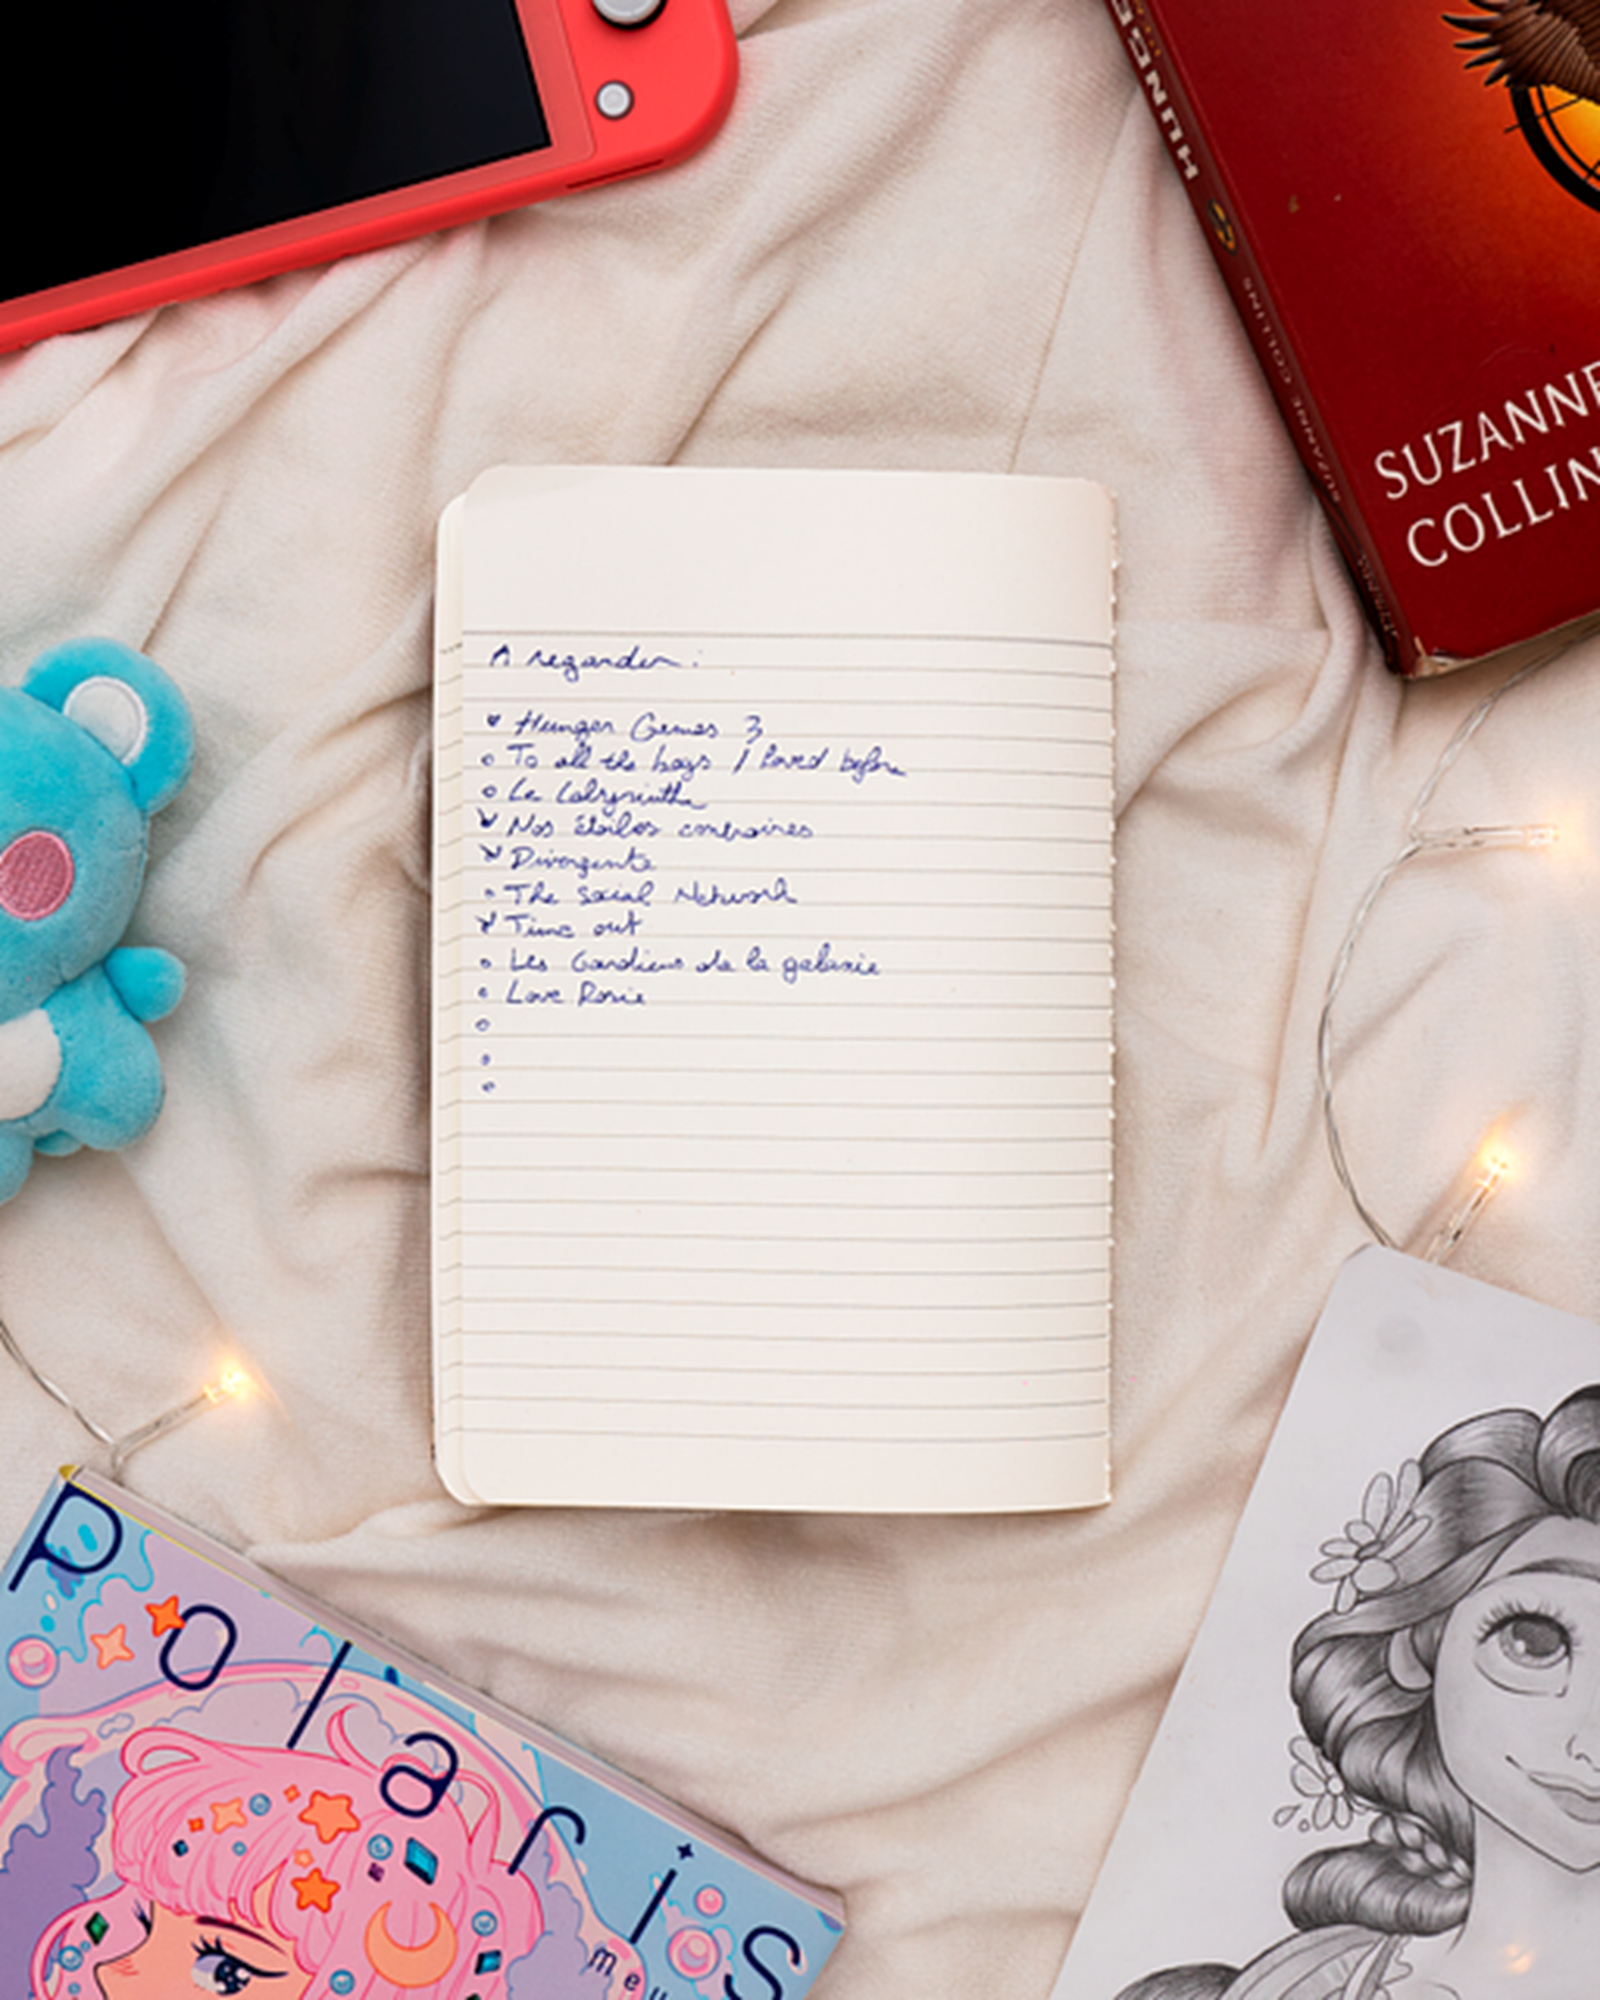 HUNGE
SUZANNE COLLINS
SUZANNE
COLLIN
A regarder :
Hunger Games 3
To all the boys I loved before
Le Labyrinthe
Nos étoiles contraires
Divergente
The Social Network
Time out
Les Gardiens de la galaxie
Love Rosie
Polaris
meu